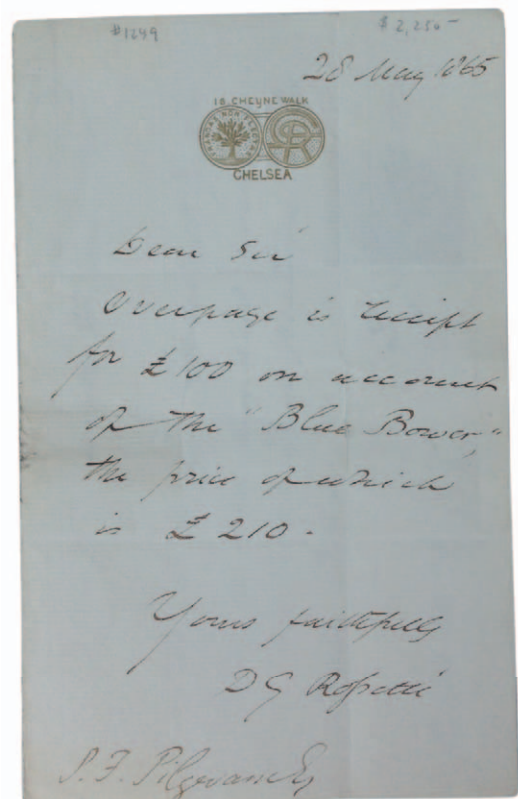 #1249 $2,250-
28 May 1865
16 CHEYNE WALK
FRANGAS NON FLECTAS
DGR
CHELSEA
Dear Sir
Overpage is receipt
for £100 on account
of the "Blue Bower,"
the price of which
is £210.
Yours faithfully
D G Rossetti
S. F. Pilgeram Esq